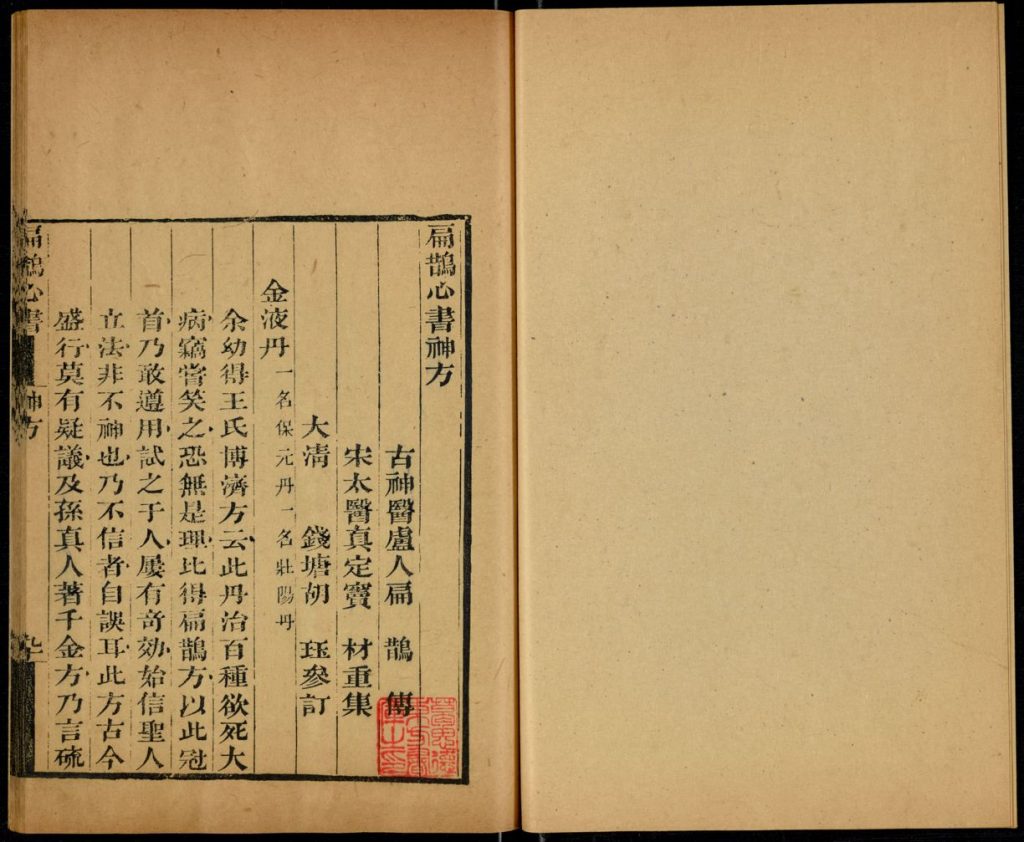 扁鵲心書神方
古神醫盧人扁 鵲 傳
宋太醫真定竇 材重集
大清 錢塘胡 珏參訂
金液丹一名保元丹一名壯陽丹
余幼得王氏博濟方云此丹治百種欲死大
病竊嘗笑之恐無是理比得扁鵲方以此冠
首乃敢遵用試之于人屢有奇効始信聖人
立法非不神也乃不信者自誤耳此方古今
盛行莫有疑議及孫真人著千金方乃言硫
扁鵲心書 神方